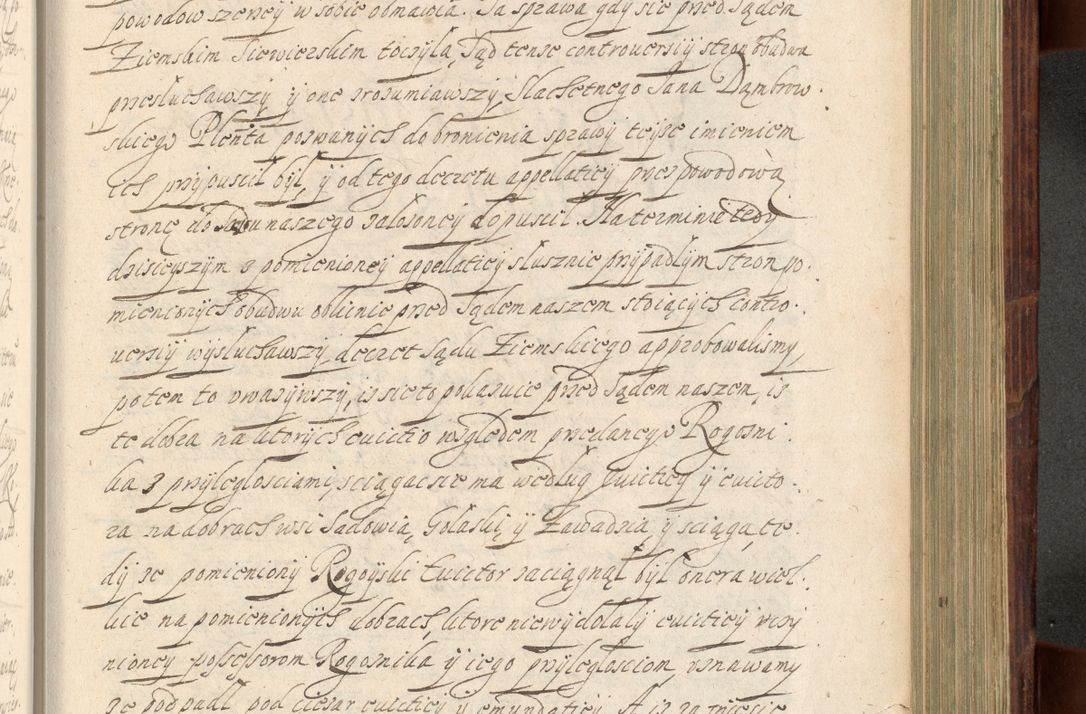 powodow szerzey w sobie obmawia. Ta sprawa gdy sie przed Sądem
Ziemskim Siewierskim toczyła, Sąd tense controuersiy stron obudwu
przesłuchawszy y one zrozumiawszy, slachetnego Jana Dąmbrow.
skiego Plenta pozwanych do bronienia sprawy teyze imieniem
ich przypuscił był, y od tego decretu appellatiey przez powodową
stronę do Sądu naszego założoney dopuscil. Na terminie tedy
dzisieyszym z pomienioney appellatiey słusznie przypadlym stron po.
mienionych obudwu oblicnie przed Sądem naszem stoiących contro.
uersiy wysłuchawszy decret Sądu Ziemskiego approbowalismy,
potem to vwazywszy, iz sie to pokazuie przed Sądem naszem, iz
te dobra na ktorych euictio względem przedaney Rogozni.
ka z przyległosciami, sciągac sie ma według euictiey y euicto.
ra na dobrach wsi Sadowia, Golaski y Zawadzia y sciąga, te.
dy ze pomieniony Rogoyski Euictor zaciągnął był onera wiel.
kie na pomienionych dobrach, ktore niewydołaly euictiey vczy
nioney possessorom Rogoznika y iego przyległosciom, vznawamy
ze podpadł pod ciezar euictiey y emundatiey. A iz za zniesie